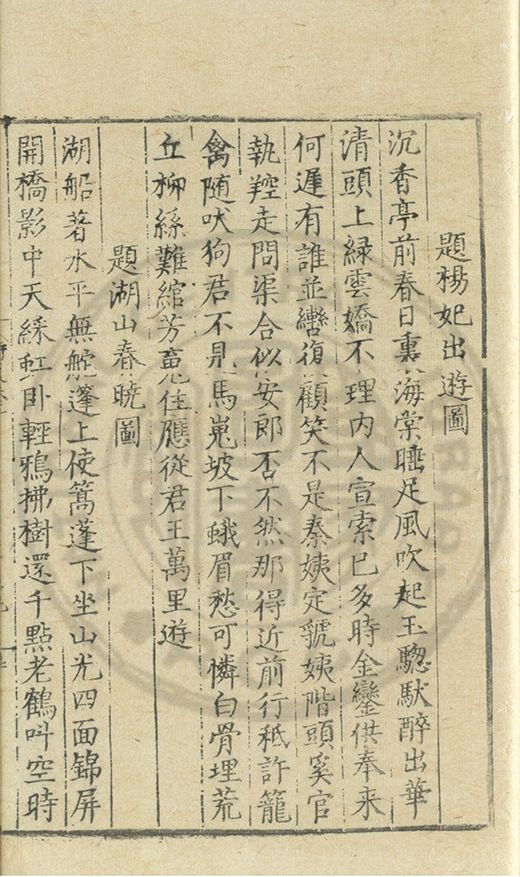 題楊妃出遊圖
沉香亭前春日裏海棠睡足風吹起玉驄馱醉出華
清頭上綠雲嬌不理内人宣索已多時金鑾供奉来
何遲有誰並轡復顧笑不是秦姨定虢姨階頭奚官
執鞚走問渠合似安郎否不然那得近前行秪許籠
禽随吠狗君不見馬嵬坡下蛾眉愁可憐白骨埋荒
丘柳絲難綰芳䰟住應從君王萬里遊
題湖山春曉圖
湖船著水平無舵蓬上使篙蓬下坐山光四面錦屏
開橋影中天綵虹卧輕鴉拂樹還千點老鶴叫空時